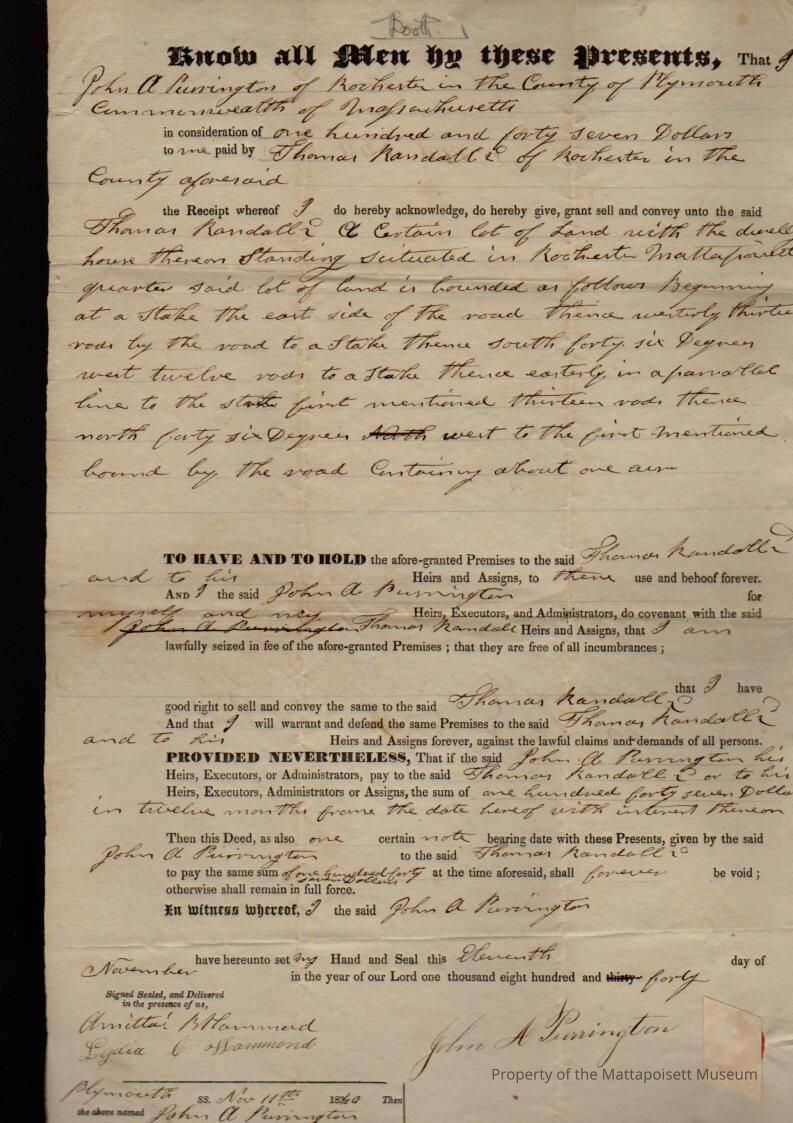 Know all Men by these Presents, That I
John A Purrington of Rochester in the County of Plymouth
Commonwealth of Massachusetts
in consideration of one hundred and forty seven Dollars
to me paid by Thomas Randall 2 of Rochester in the
County aforesaid
the Receipt whereof I do hereby acknowledge, do hereby give, grant sell and convey unto the said
Thomas Randall 2 A Certain lot of Land with the dwell
house thereon Standing situated in Rochester Mattapoisett
quarter said lot of land is bounded as follows Beginning
at a Stake the east side of the road thence westerly thirtee
rods by the road to a Stake thence south forty six Degrees
west twelve rods to a Stake thence easterly in a parrallel
line to the first mentioned thirteen rods thence
north forty six Degrees North west to the first mentioned
bound by the road Containing about one acre
TO HAVE AND TO HOLD the afore-granted Premises to the said Thomas Randall 2
and to his Heirs and Assigns, to there use and behoof forever.
AND I the said John A Purrington for
myself and my Heirs, Executors, and Administrators, do covenant with the said
John A Purrington Thomas Randall Heirs and Assigns, that I am
lawfully seized in fee of the afore-granted Premises ; that they are free of all incumbrances ;
that I have
good right to sell and convey the same to the said Thomas Randall 2
And that I will warrant and defend the same Premises to the said Thomas Randall 2
and to his Heirs and Assigns forever, against the lawful claims and demands of all persons.
PROVIDED NEVERTHELESS, That if the said John A Purrington his
Heirs, Executors, or Administrators, pay to the said Thomas Randall 2 or to his
Heirs, Executors, Administrators or Assigns, the sum of one hundred forty seven Dolla
in twelve months frome the date hereof with interest thereon
Then this Deed, as also one certain note bearing date with these Presents, given by the said
John A Purrington to the said Thomas Randall 2
to pay the same sum of one hundred forty seven Dollars at the time aforesaid, shall forever be void ;
otherwise shall remain in full force.
In witness whereof, I the said John A Purrington
have hereunto set my Hand and Seal this Eleventh day of
November in the year of our Lord one thousand eight hundred and thirty forty
Signed Sealed, and Delivered
in the presence of us,
Amittai B Hammond
Lydia C Hammond
John A Purrington
Property of the Mattapoisett Museum
Plymouth ss. Nov 11th 1840 Then
the above named John A Purrington